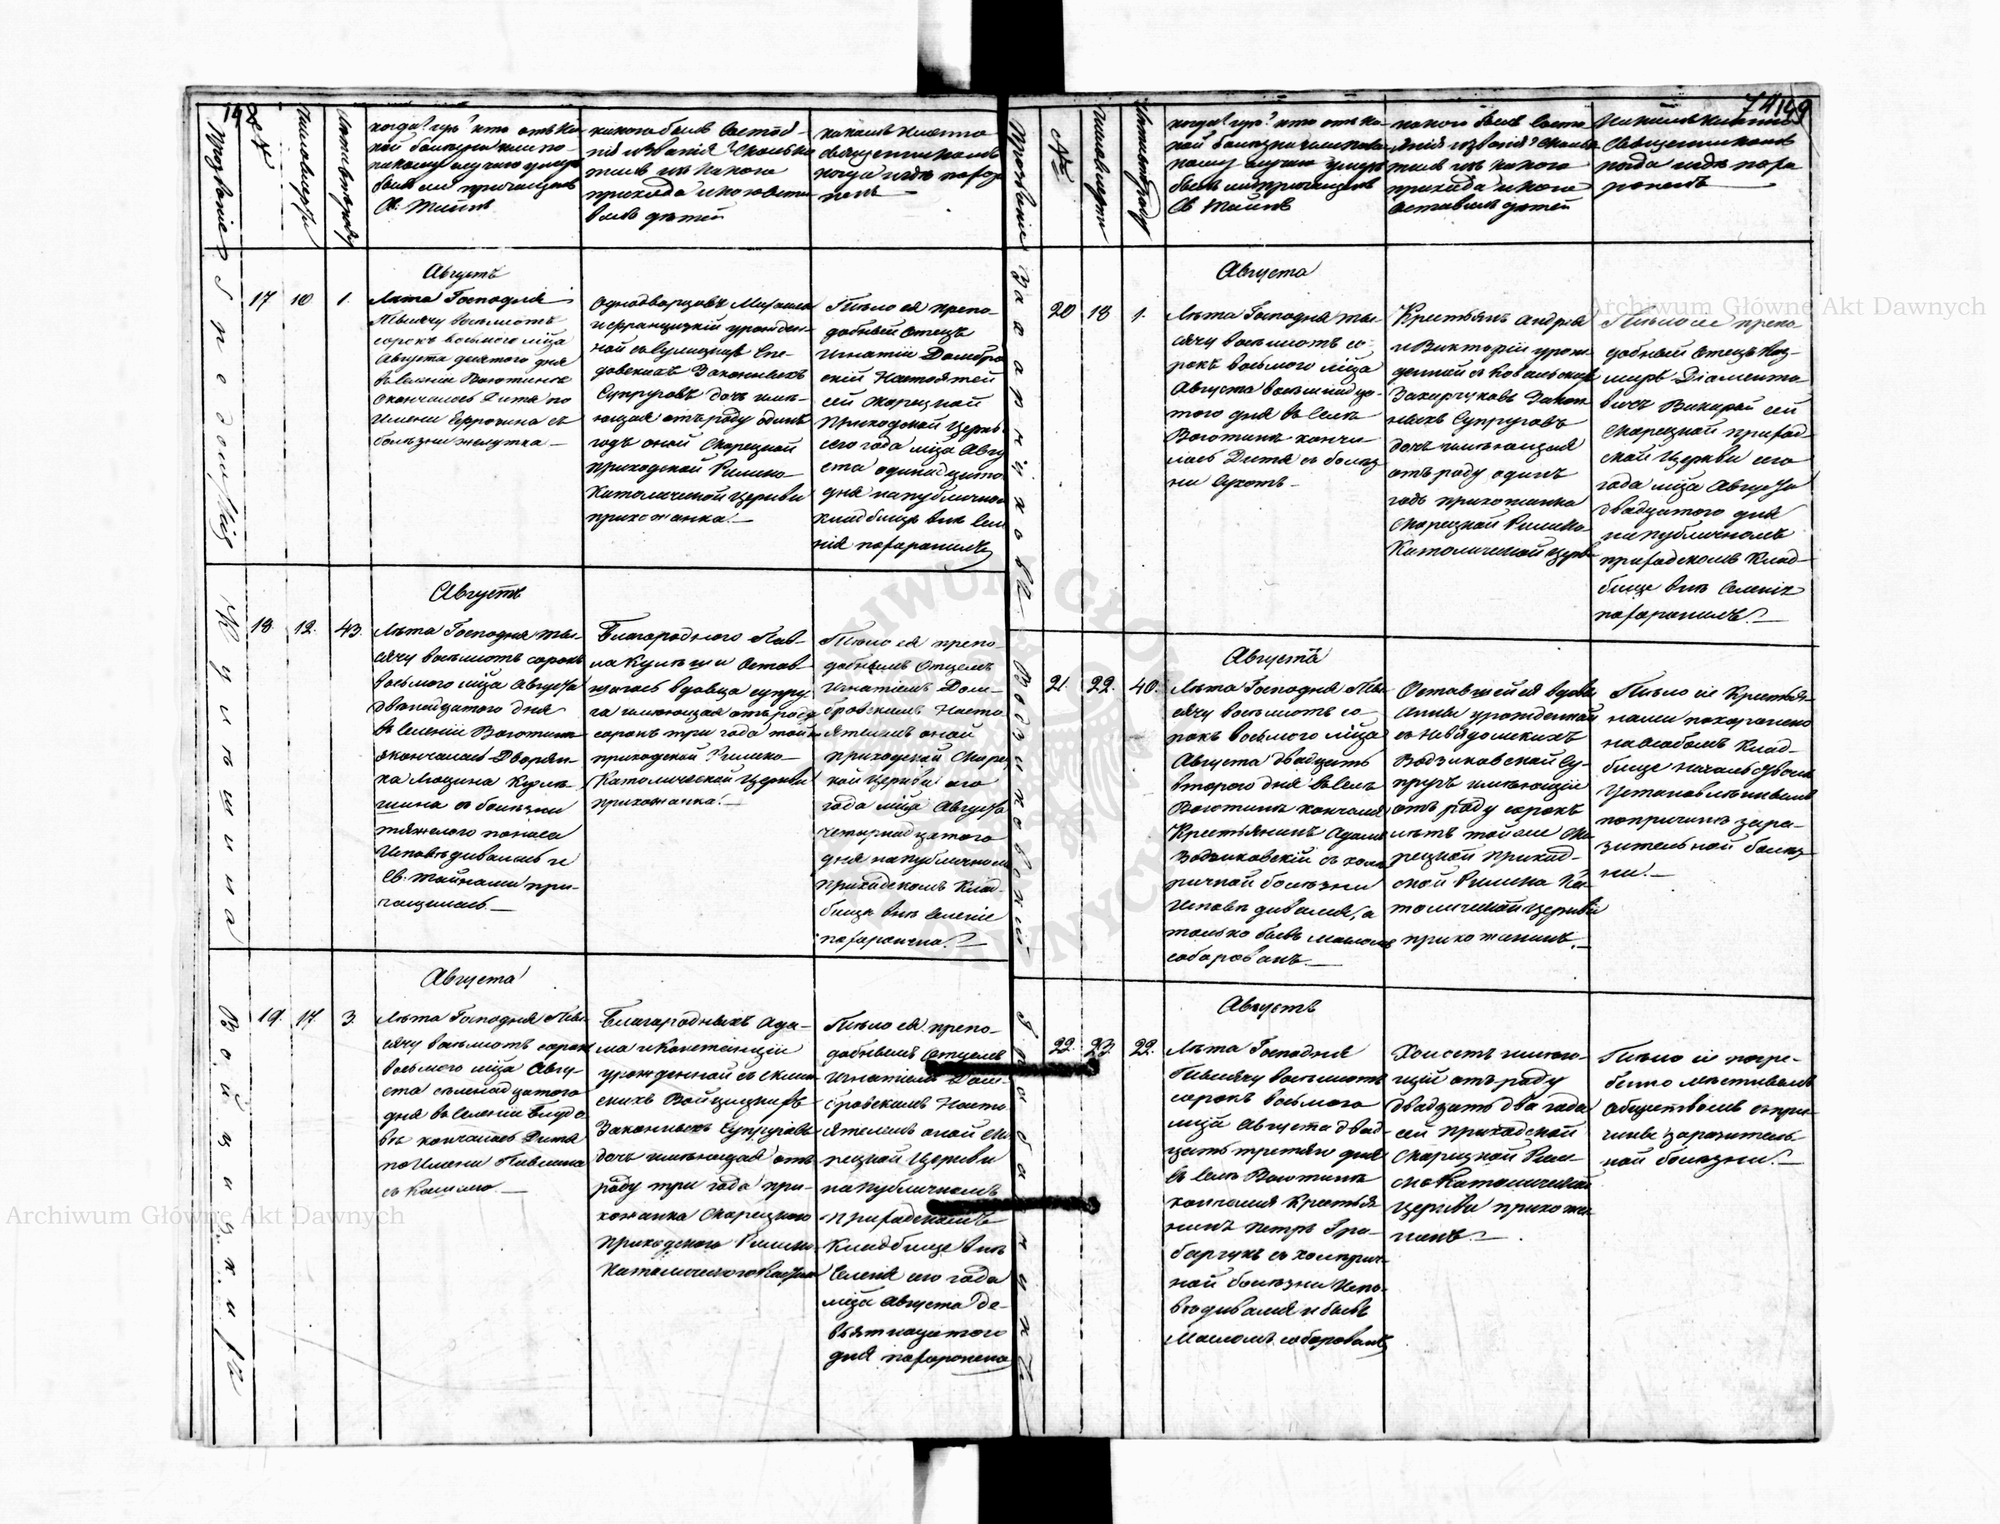 148
Прозванiе
№
Число смерти
Когда? гдѣ? кто отъ ка-
кой болѣзни или по
какому случаю умеръ
былъ ли причащенъ
Св. Тайнъ
какого былъ состоя-
нiя и званiя? сколько
лѣтъ изъ какого
прихода и кого оста-
вилъ дѣтей
Священникомъ
когда и гдѣ похоро-
ненъ
17
10
1.
Августъ
Лѣта Господня
Тысячу восьмсотъ
сорокъ восьмого мца
Августа девятого дня
въ селенiи Воютинѣ
скончалась Дитя по
Имени Ефрозина съ
болѣзни желутка
Однодворцовъ Михаила
и Францишкiи урожден-
ной съ
Законныхъ
Супруговъ дочь имѣ-
ющая отъ роду одинъ
годъ оной Скорецкой
приходской Римско
Католической Церкви
прихожанка.
Тѣло ея препо-
добный Отецъ
Игнатiй Домбров-
скiй Настоятель
сей Скорецкой
Приходской Церкви
сего года мца Авгу-
ста одинадцатого
дня на публичномъ
кладбищѣ внѣ селе-
нiя похоронилъ
18.
12.
43.
Августъ
Лѣта Господня ты-
сячу восьмсотъ сорокъ
восьмого мца Августа
двенадцатого дня
въ селенiи Воютинѣ
скончалась Дворян-
ка Люцина Кулѣ-
шина съ болѣзни
тяжелого поноса
Исповѣдивалась и
Св. Тайнами при-
чащилась.
Благородного Пав-
ла Кулѣши Остав-
шагось вдовца супру-
га имѣющая отъ роду
сорокъ три года той же
приходской Римско
Католической Церкви
прихожанка.
Тѣло ея препо-
добнымъ Отцемъ
Игнатiемъ Дом-
бровскимъ Насто-
ятелемъ оной
приходской Скорец-
кой Церкви сего
года мца Августа
четырнадцатого
дня на публичномъ
приходскомъ Клад-
бищѣ внѣ селенiе
похоронена.
19.
17.
3.
Августа
Лѣта Господня Ты-
сячу восьмсотъ сорокъ
восьмого мца Авгу-
ста семнадцатого
дня въ селенiи
кончалась Дитя
по Имени Павлина
съ Кашлю.
Благородныхъ Ада-
ма и Констанцiи
урожденной съ
Войцицкихъ
Законныхъ Супруговъ
дочь имѣющая отъ
роду три года при-
хожанка Скорецкого
Приходского Римско
Католического Костела
Тѣло ея препо-
добнымъ Отцемъ
Игнатiемъ Дом-
бровскимъ Насто-
ятелемъ оной Ско-
рецкой Церкви
на Публичномъ
Приходскомъ
Кладбище внѣ
Селенiя сего года
мца Августа де-
вятнадцатого
дня похоронена
74
149
Прозванiе
№
Число смерти
Когда? гдѣ? кто отъ ка-
кой болѣзни или по ка-
кому случаю умеръ
былъ ли причащенъ
Св Тайнъ
какого былъ состо-
янiя и званiя? сколько
лѣтъ изъ какого
прихода и кого
оставилъ дѣтей
Священникомъ
когда и гдѣ похо
роненъ
20
18
1.
Августа
Лѣта Господня ты-
сячу восьмсотъ со-
рокъ восьмого мца
Августа восьмнадца-
того дня въ Селѣ
Воютинѣ кончи-
лась Дитя съ болѣз-
ни Сухотъ
Крестьянъ Андрея
и Викторiи урож-
денной съ Ковальскихъ
Захарчуковъ Закон-
ныхъ Супруговъ
дочь имѣющая
отъ роду одинъ
годъ прихожанка
Скорецкой Римско
Католической Церкви
Тѣло ея препо-
добный Отецъ Каз-
мiръ Дiаменто-
вичъ Викарiй сей
Скорецкой приход-
ской Церкви сего
года мца Августа
двадцатого дня
на публичномъ
приходскомъ Клад-
бище внѣ Селенiя
похоронилъ.
21.
22.
40.
Августа
Лѣта Господня Ты-
сячу восьмсотъ со-
рокъ восьмого мца
Августа двадцать
второго дня въ Селѣ
Воютинѣ кончался
Крестьянинъ Адамъ
Водзиковскiй съ холе-
ричной болѣзни
Исповѣдивался, а
только былъ масломъ
соборованъ.
Оставшейся вдовы
Анны урожденной
съ Невядомскихъ
Водзиковской Су-
пругъ имѣющiй
отъ роду сорокъ
лѣтъ той же Ско-
рецкой приход-
ской Римско Ка-
толической Церкви
прихожанинъ.
Тѣло iе Крестья-
нами похоронено
на особомъ Клад-
бище Начальством
Установленнымъ
по причинѣ зара-
зительной болѣз-
ни.
22.
23.
22.
Августъ
Лѣта Господня
Тысячу восьмсотъ
сорокъ восьмого
мца Августа двад-
цать третьяго дня
въ Селѣ Воютинѣ
кончался Крестья-
нинъ Петръ Гра-
барчукъ съ холерич-
ной болѣзни Испо-
вѣдивался и былъ
Масломъ соборованъ
Холостъ имѣю-
щiй отъ роду
двадцать два года
сей приходской
Скорецкой Рим-
ско Католической
Церкви прихожа-
нинъ.
Тѣло iе погре-
бенно мѣстнымъ
обществомъ съ при-
чины заразитель-
ной болѣзни.
Archiwum Główne Akt Dawnych
Archiwum Główne Akt Dawnych